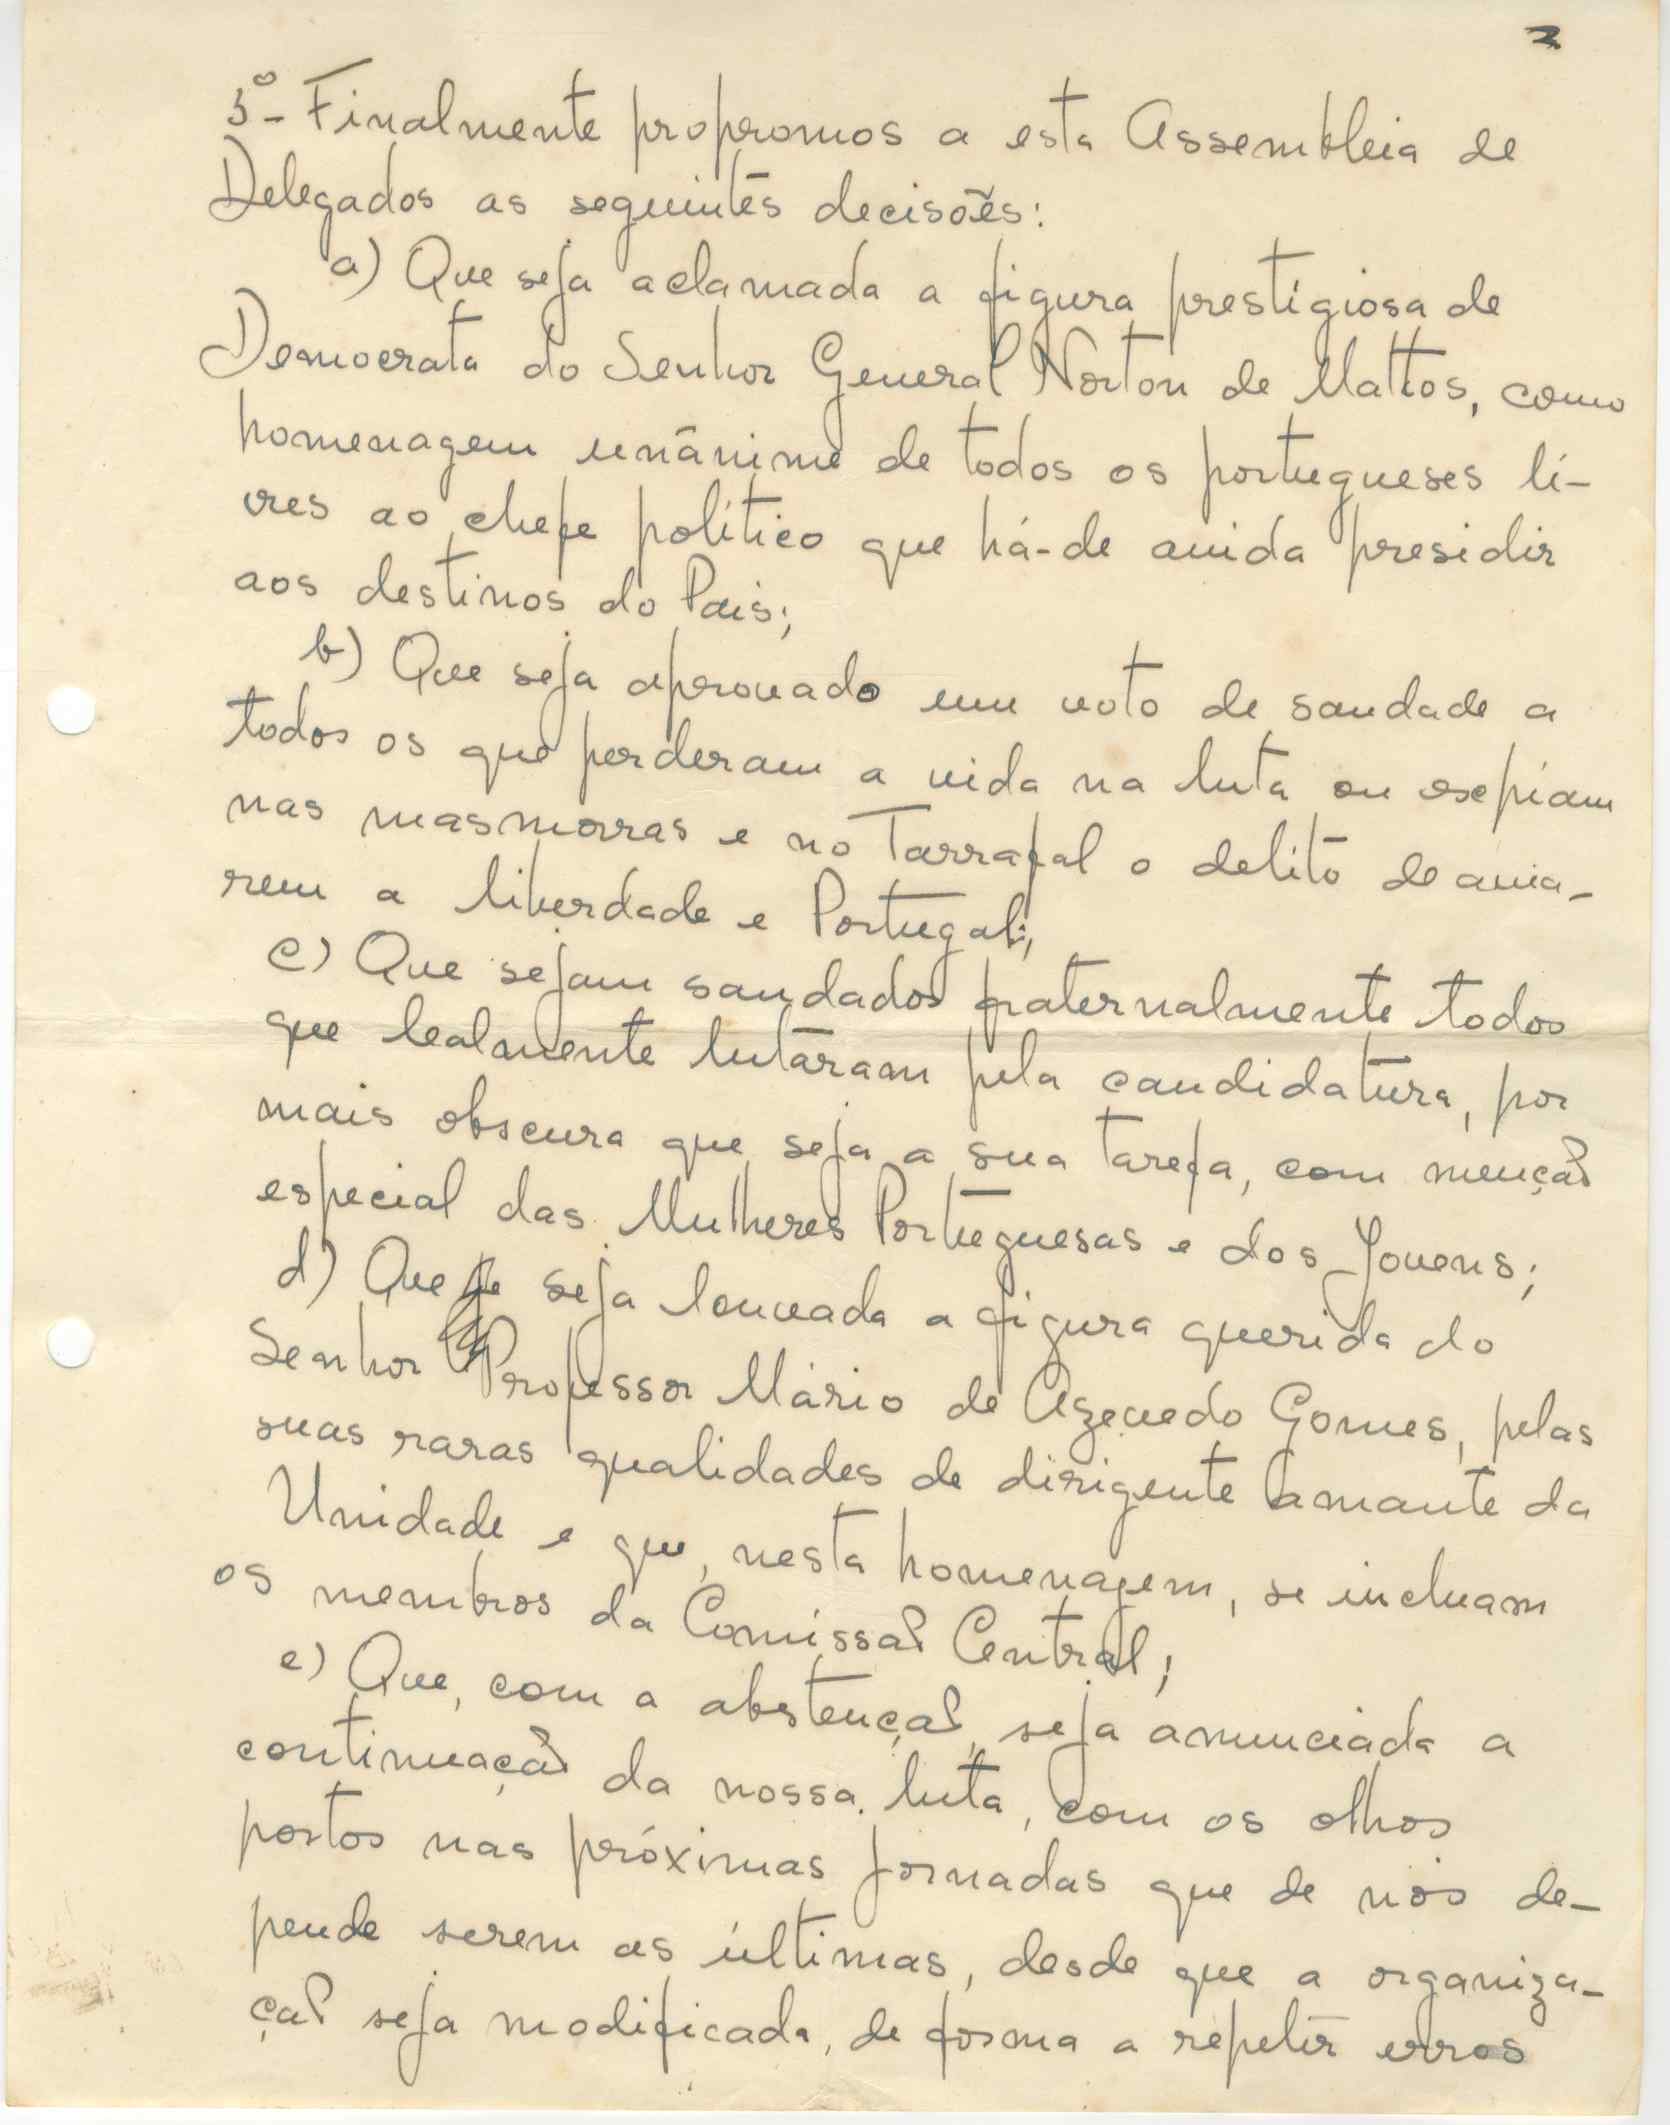 3
3º - Finalmente propromos a esta Assembleia de
Delegados as seguintes decisões:
a) Que seja aclamada a figura prestigiosa de
Democrata do Senhor General Norton de Mattos, como
homenagem unânime de todos os portugueses li-
vres ao chefe político que há-de ainda presidir
aos destinos do Pais;
b) Que seja aprovado um voto de saudade a
todos os que perderam a vida na luta ou expiam
nas masmorras e no Tarrafal o delito de ama-
rem a liberdade e Portugal;
c) Que sejam saudados fraternalmente todos
que lealmente lutaram pela candidatura, por
mais obscura que seja a sua tarefa, com menção
especial das Mulheres Portuguesas e dos Jovens;
d) Que seja louvada a figura querida do
Senhor Professor Mário de Azevedo Gomes, pelas
suas raras qualidades de dirigente amante da
Unidade e que, nesta homenagem, se incluam
os membros da Comissão Central;
e) Que, com a abstenção, seja anunciada a
continuação da nossa luta, com os olhos
postos nas próximas jornadas que de nós de-
pende serem as últimas, desde que a organiza-
ção seja modificada, de forma a repetir erros